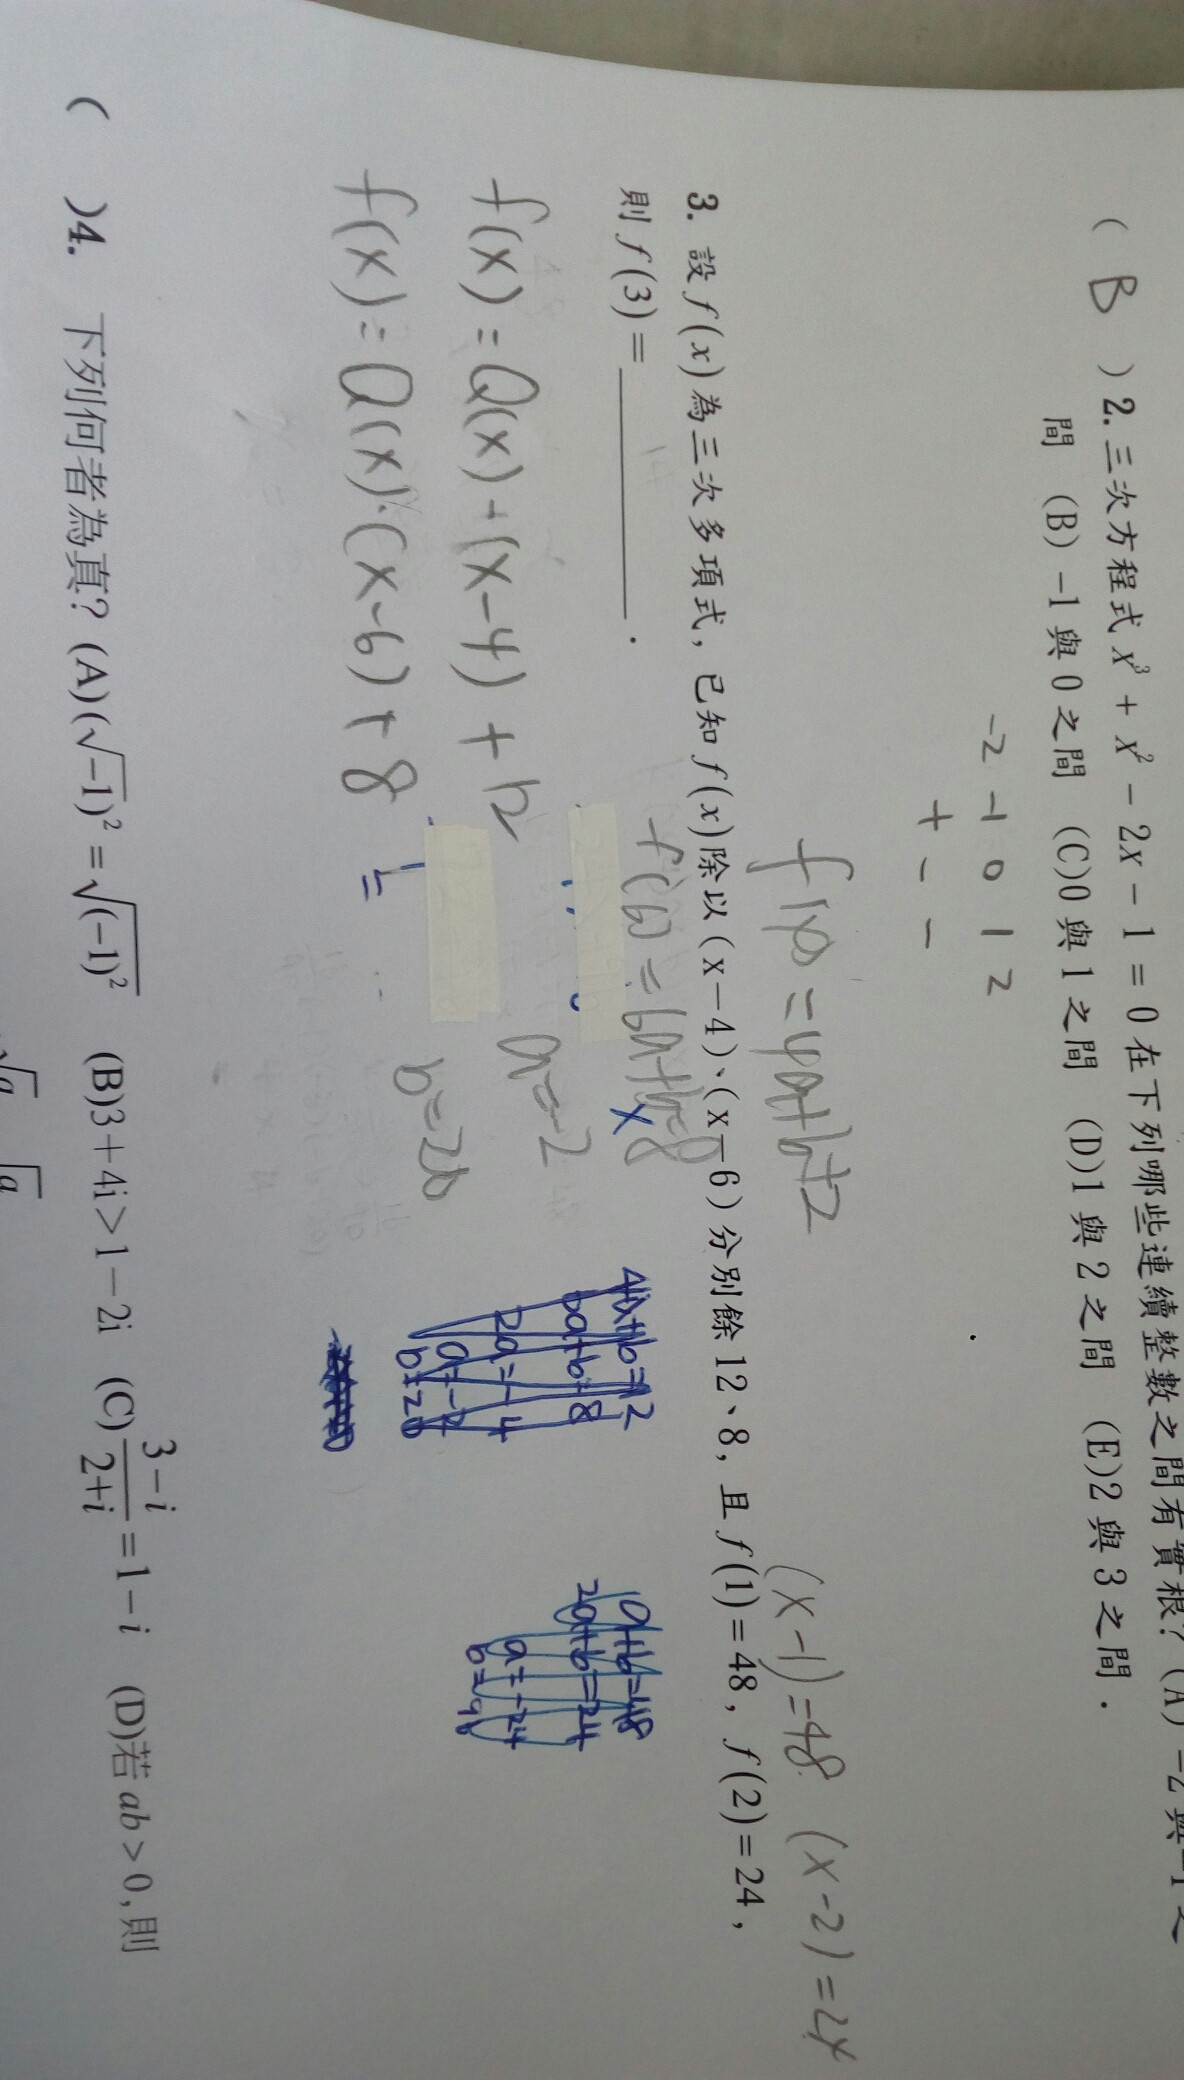 ( B ) 2. 三次方程式 x³ + x² - 2x - 1 = 0 在下列哪些連續整數之間有實根? (A) -2 與 -1 之
間 (B) -1 與 0 之間 (C)0 與 1 之間 (D)1 與 2 之間 (E)2 與 3 之間．
-2 -1 0 1 2
+ - -
(x-1)=48 (x-2)=24
3. 設 f(x) 為三次多項式，已知 f(x) 除以 (x-4)、(x-6) 分別餘 12、8，且 f(1)=48，f(2)=24，
則 f(3)=________．
f(6)=6a+b=8
4a+b=12
6a+b=8
2a=-4
a=-2
b=20
a+b=48
2a+b=24
a=-24
b=96
f(x)=Q(x)·(x-4)+12
a=-2
f(x)=Q(x)·(x-6)+8
=
b=20
( )4. 下列何者為真? (A)(√-1)²=√(-1)² (B)3+4i>1-2i (C)(3-i)/(2+i)=1-i (D)若ab>0,則
√a √a